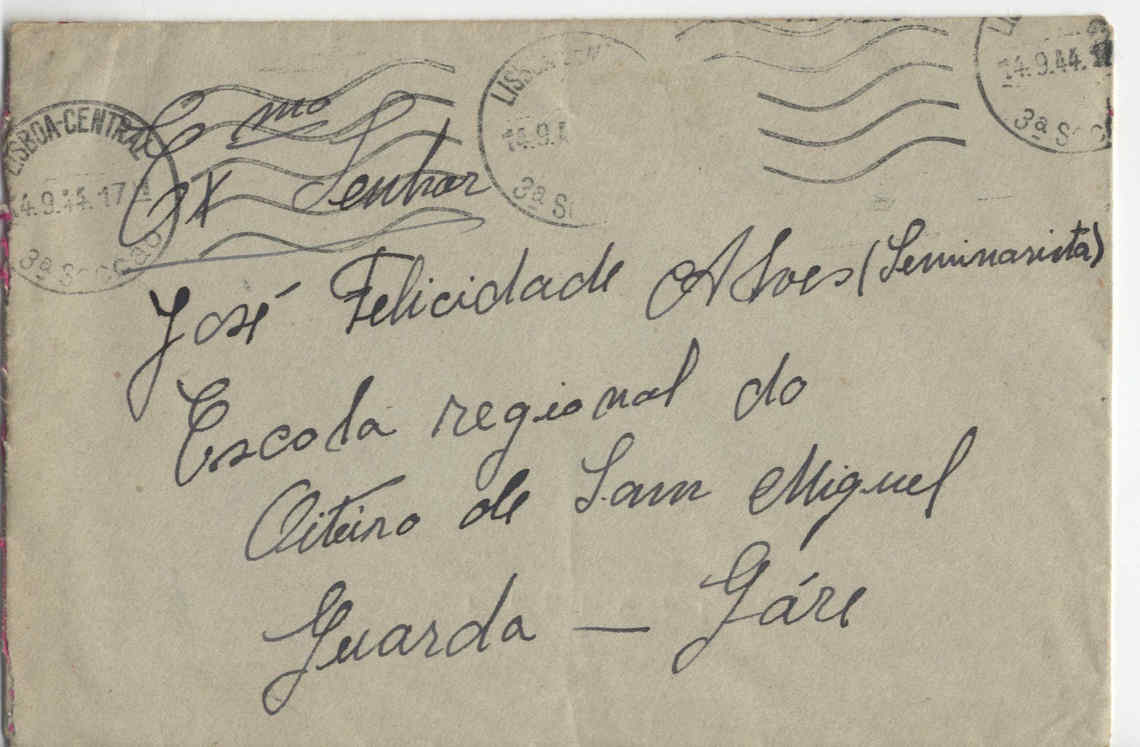 LISBOA-CENTRAL
14.9.44.17
3ª Secção
LISBOA CEN
14.9.4
3ª S
LI
14.9.44.1
3ª Secç
Exmo Senhor
José Felicidade Alves (Seminarista)
Escola regional do
Oiteiro de Sam Miguel
Guarda — Gáre